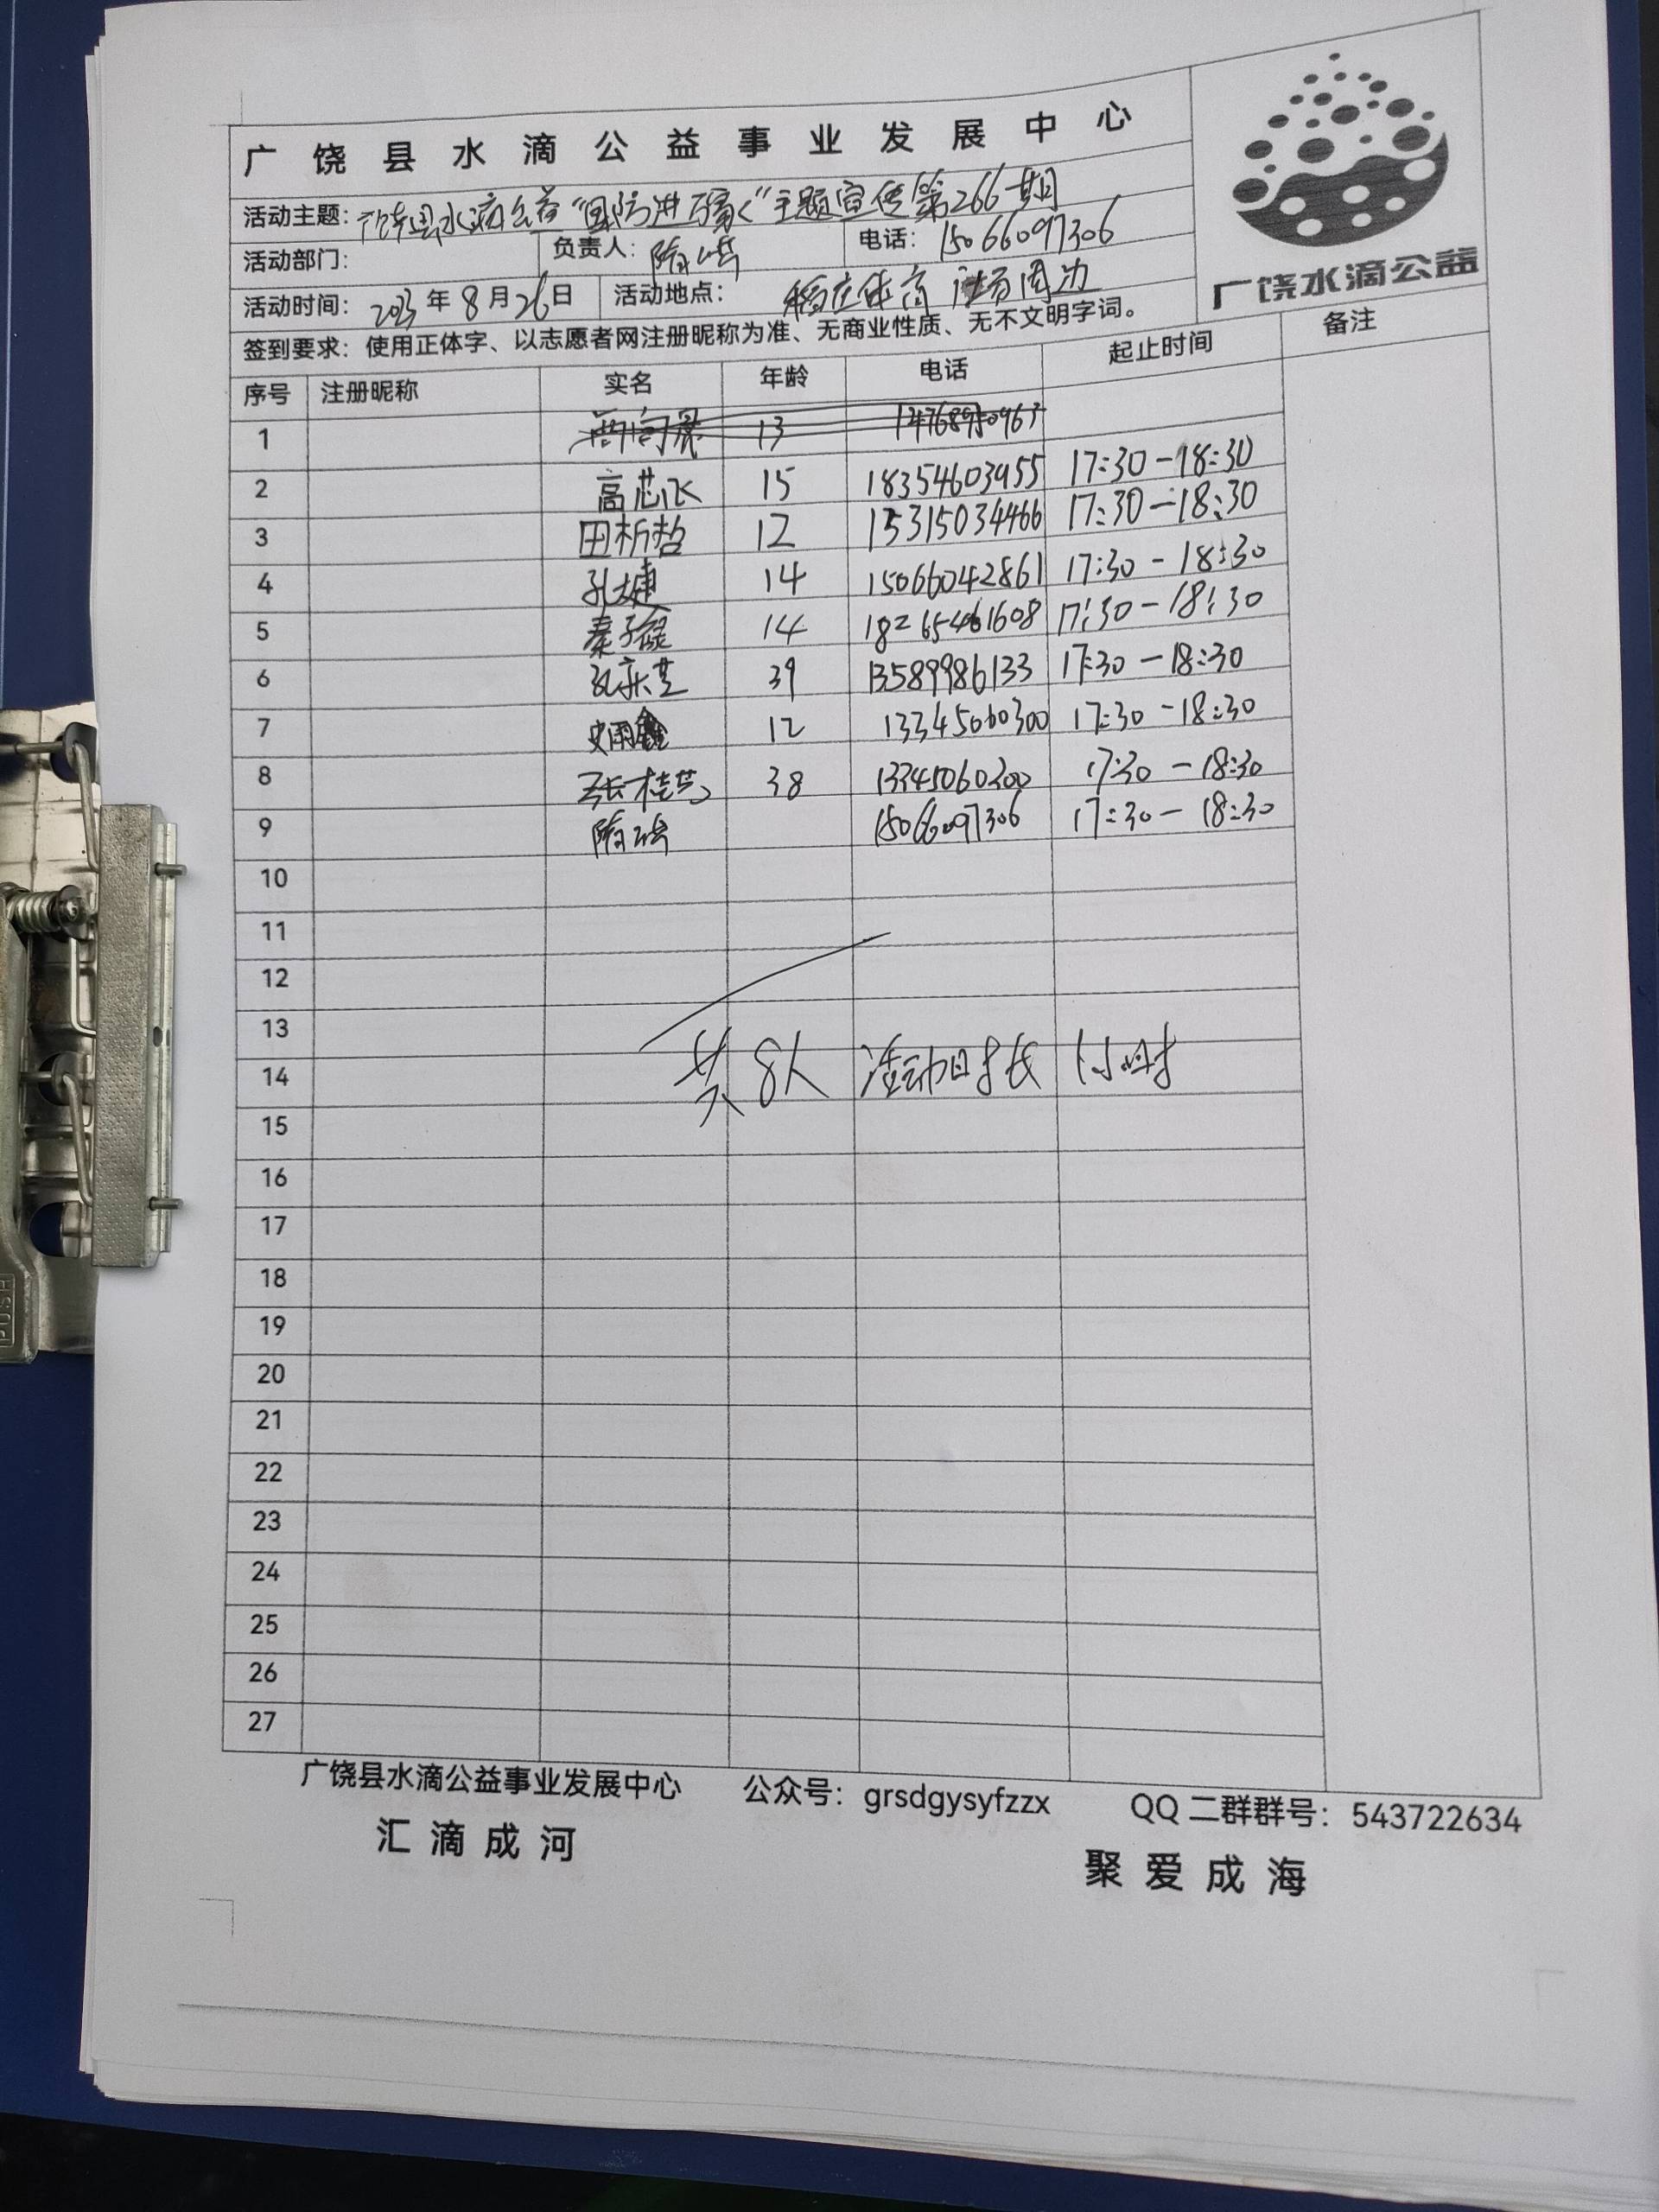 广饶县水滴公益事业发展中心
广饶水滴公益
活动主题：广饶县水滴公益“国防进万家”主题宣传第266期
活动部门： 负责人：隋 电话：15066097306
活动时间：2023年8月26日 活动地点：稻庄 广场周边
签到要求：使用正体字、以志愿者网注册昵称为准、无商业性质、无不文明字词。
序号 注册昵称 实名 年龄 电话 起止时间 备注
1 13
2 高芯飞 15 18354603955 17:30-18:30
3 田析哲 12 15315034466 17:30-18:30
4 孔婕 14 15066042861 17:30-18:30
5 秦子 14 18265461608 17:30-18:30
6 39 13589986133 17:30-18:30
7 史雨鑫 12 13345060300 17:30-18:30
8 张桂芝 38 13345060300 17:30-18:30
9 隋 15066097306 17:30-18:30
10
11
12
13
14 共8人 活动时长 1小时
15
16
17
18
19
20
21
22
23
24
25
26
27
广饶县水滴公益事业发展中心 公众号：grsdgysyfzzx QQ二群群号：543722634
汇滴成河 聚爱成海
PUSH